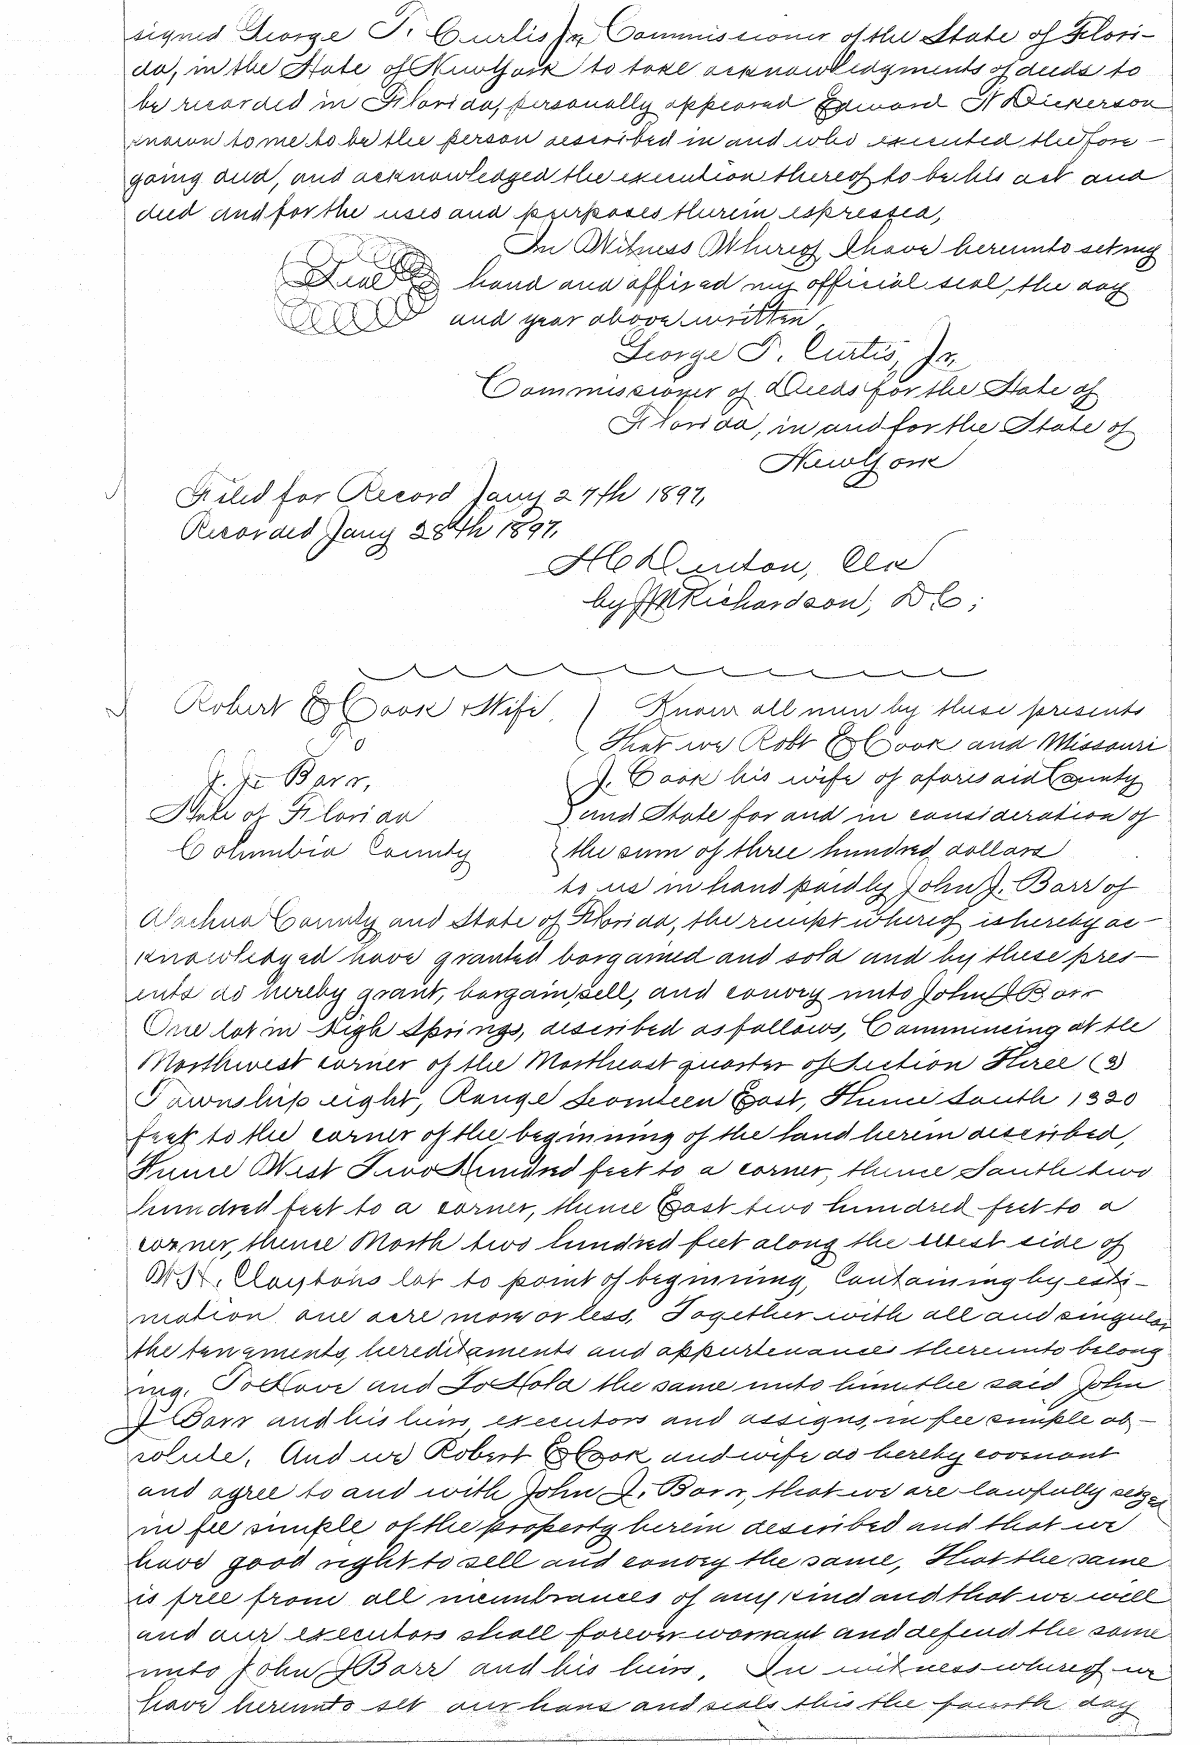 signed George T. Curtis Jr Commissioner of the State of Flori-
da, in the State of New York to take acknowledgments of deeds to
be recorded in Florida, personally appeared Edward N Dickerson
known to me to be the person described in and who executed the fore-
going deed, and acknowledged the execution thereof to be his act and
deed and for the uses and purposes therein expressed,
In Witness Whereof I have hereunto set my
Seal hand and affixed my official seal, the day
and year above written,
George T. Curtis, Jr,
Commissioner of Deeds for the State of
Florida, in and for the State of
New York
Filed for Record Jany 27th 1897,
Recorded Jany 28th 1897,
H C Denton, Clk
by J M Richardson, D C;
Robert E Cook & Wife, Know all men by these presents
To That we Robt E Cook and Missouri
J. J. Barr, J. Cook his wife of aforesaid County
State of Florida and State for and in consideration of
Columbia County the sum of three hundred dollars
to us in hand paid by John J. Barr of
Alachua County and State of Florida, the receipt whereof is hereby ac-
knowledged have granted bargained and sold and by these pres-
ents do hereby grant, bargain, sell, and convey unto John J Barr
One lot in High Springs, described as follows, Commencing at the
Northwest corner of the Northeast quarter of Section Three (3)
Township eight, Range Seventeen East, Thence South 1320
feet to the corner of the beginning of the land herein described,
Thence West Two Hundred feet to a corner, thence South two
hundred feet to a corner, thence East two hundred feet to a
corner, thence North two hundred feet along the west side of
W. H. Clayton's lot to point of beginning, Containing by esti-
mation one acre more or less, Together with all and singular
the tenements, hereditaments and appurtenances thereunto belong
ing, To Have and To Hold the same unto him the said John
J Barr and his heirs, executors and assigns, in fee simple ab-
solute, And we Robert E Cook and wife do hereby covenant
and agree to and with John J. Barr, that we are lawfully seized
in fee simple of the property herein described and that we
have good right to sell and convey the same, That the same
is free from all incumbrances of any kind and that we will
and our executors shall forever warrant and defend the same
unto John J Barr and his heirs, In witness whereof we
have hereunto set our hans and seals this the fourth day